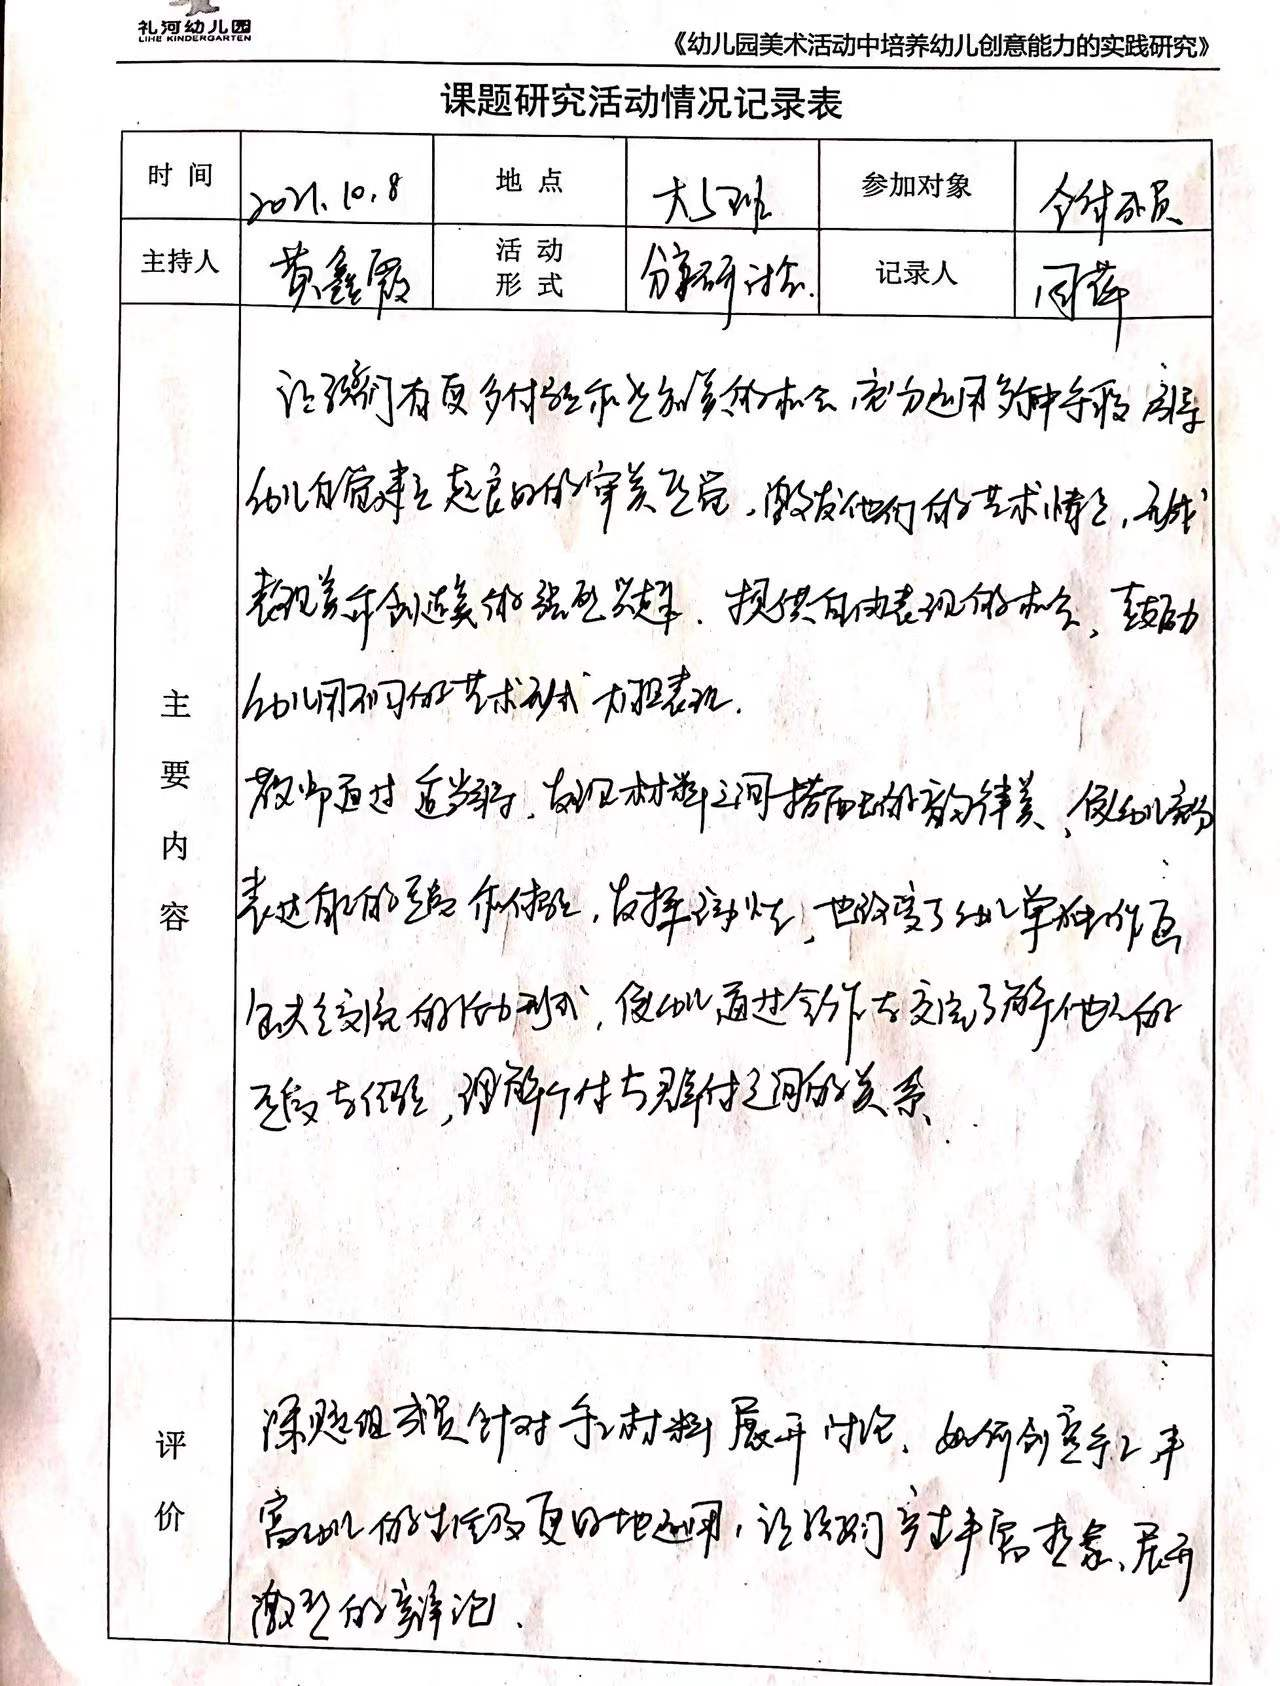 礼河幼儿园
LIHE KINDERGARTEN
《幼儿园美术活动中培养幼儿创意能力的实践研究》
课题研究活动情况记录表
时间 2021.10.8 地点 大5班 参加对象 全体成员
主持人 黄鑫霞 活动形式 分享研讨会. 记录人 闵萍
主要内容
让孩子们有更多体验和感知美的机会 充分运用多种手段 引导
幼儿自觉建立起良好的审美感觉，激发他们的艺术情感，形成
表现美和创造美的强烈兴趣. 提供自由表现的机会，鼓励
幼儿用不同的艺术形式大胆表现.
教师通过适当引导，发现材料之间搭配出的韵律美，使幼儿充分
表达自己的感受和体验，发挥，也改变了幼儿单独作画
缺乏交流的活动形式，使幼儿通过合作与交流了解他人的
感受与经验，理解个体与群体之间的关系.
评价
课题组成员针对手工材料展开讨论，如何创意手工丰
富幼儿的生活及更好地运用，让孩子们产生丰富想象、展开
激烈的辩论.